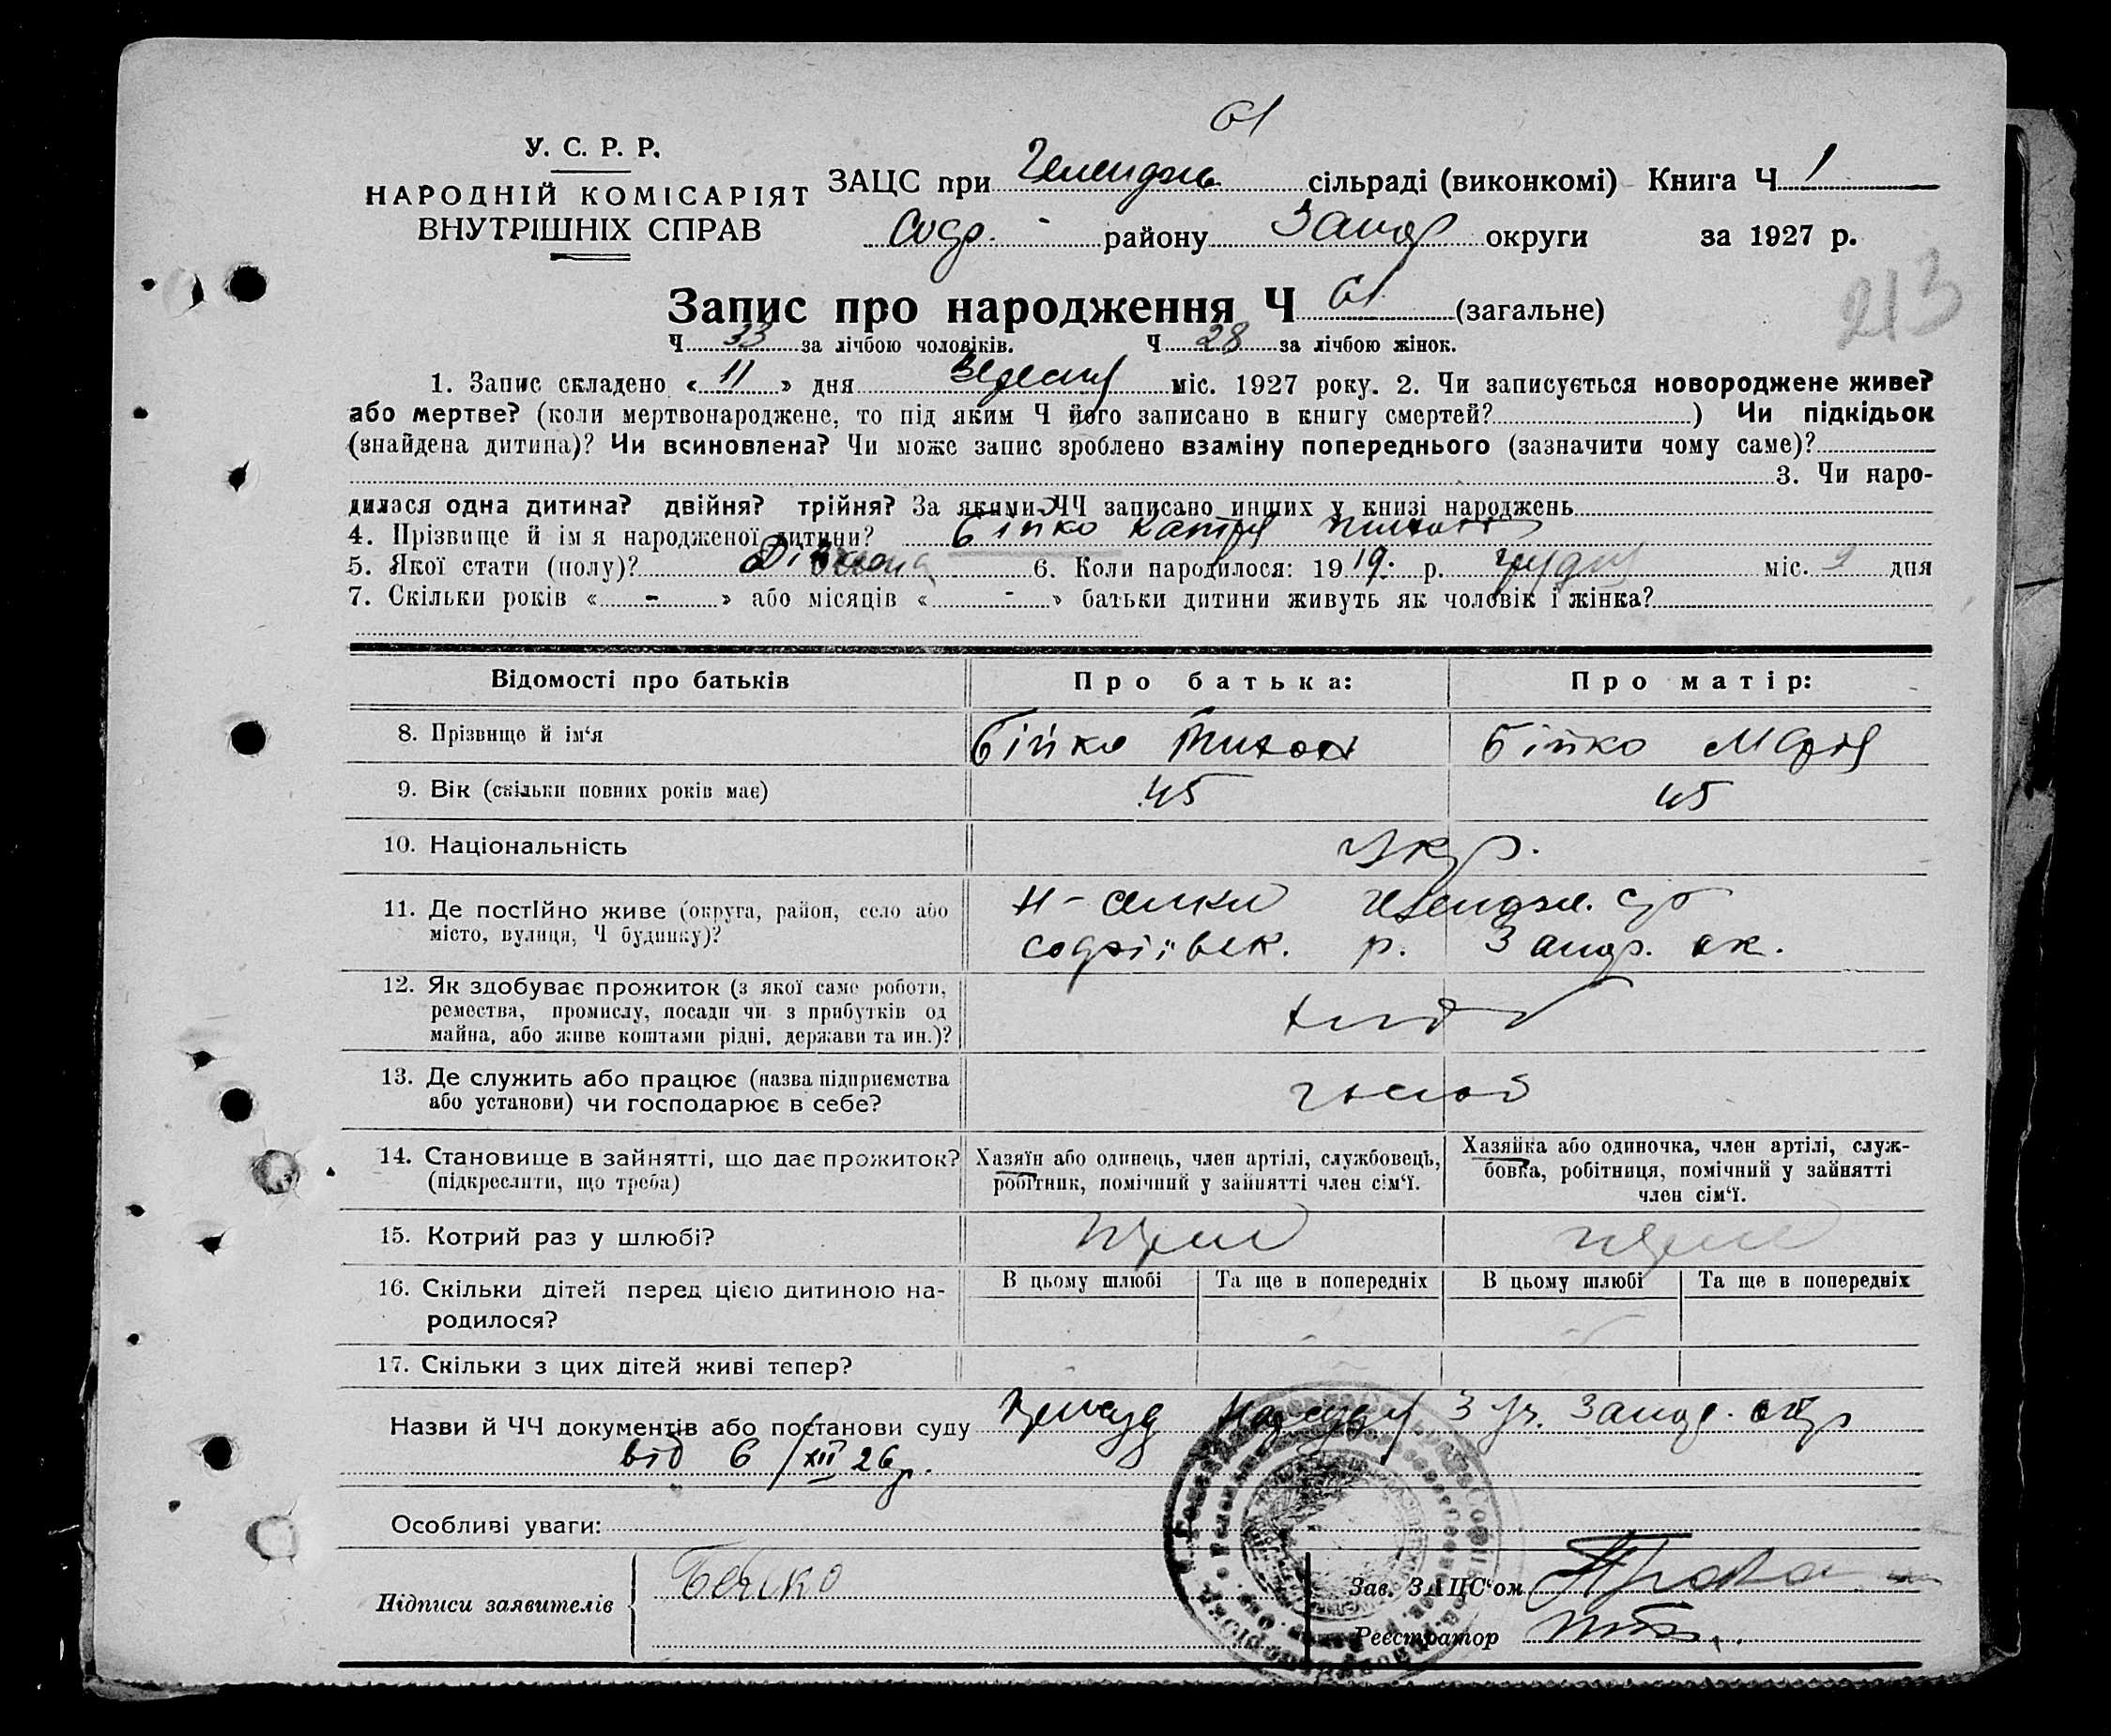 61
У. С. Р. Р.
НАРОДНІЙ КОМІСАРІЯТ
ВНУТРІШНІХ СПРАВ
ЗАЦС при сільраді (виконкомі) Книга Ч 1
Софр. району Запор округи за 1927 р.
213
Запис про народження Ч 61 (загальне)
Ч 33 за лічбою чоловіків. Ч 28 за лічбою жінок.
1. Запис складено « 11 » дня Вересня міс. 1927 року. 2. Чи записується новороджене живе?
або мертве? (коли мертвонароджене, то під яким Ч його записано в книгу смертей? ) Чи підкідьок
(знайдена дитина)? Чи всиновлена? Чи може запис зроблено взаміну попереднього (зазначити чому саме)?
3. Чи наро-
дилася одна дитина? двійня? трійня? За якими ЧЧ записано инших у книзі народжень
4. Прізвище й ім я народженої дитини? Бійко Катря
5. Якої стати (полу)? Дівчина 6. Коли народилося: 1919. р. грудня міс. 9 дня
7. Скільки років « - » або місяців « - » батьки дитини живуть як чоловік і жінка?
Відомості про батьків Про батька: Про матір:
8. Прізвище й ім‘я Бійко Тихон Бійко Марія
9. Вік (скільки повних років має) 45 45
10. Національність Укр.
11. Де постійно живе (округа, район, село або
місто, вулиця, Ч будинку)?
Софіївск. р. Запор. ок.
12. Як здобуває прожиток (з якої саме роботи,
ремества, промислу, посади чи з прибутків од
майна, або живе коштами рідні, держави та ин.)?
13. Де служить або працює (назва підприємства
або установи) чи господарює в себе?
14. Становище в зайнятті, що дає прожиток?
(підкреслити, що треба)
Хазяїн або одинець, член артілі, службовець,
робітник, помічний у зайнятті член сім‘ї.
Хазяйка або одиночка, член артілі, служ-
бовка, робітниця, помічний у зайнятті
член сім‘ї.
15. Котрий раз у шлюбі?
16. Скільки дітей перед цією дитиною на-
родилося?
В цьому шлюбі Та ще в попередніх В цьому шлюбі Та ще в попередніх
17. Скільки з цих дітей живі тепер?
Назви й ЧЧ документів або постанови суду Нарсуду 3 уч. Запор. окр
від 6/XII 26р.
Особливі уваги:
Підписи заявителів
Зав. ЗАЦС‘ом
Реєстратор